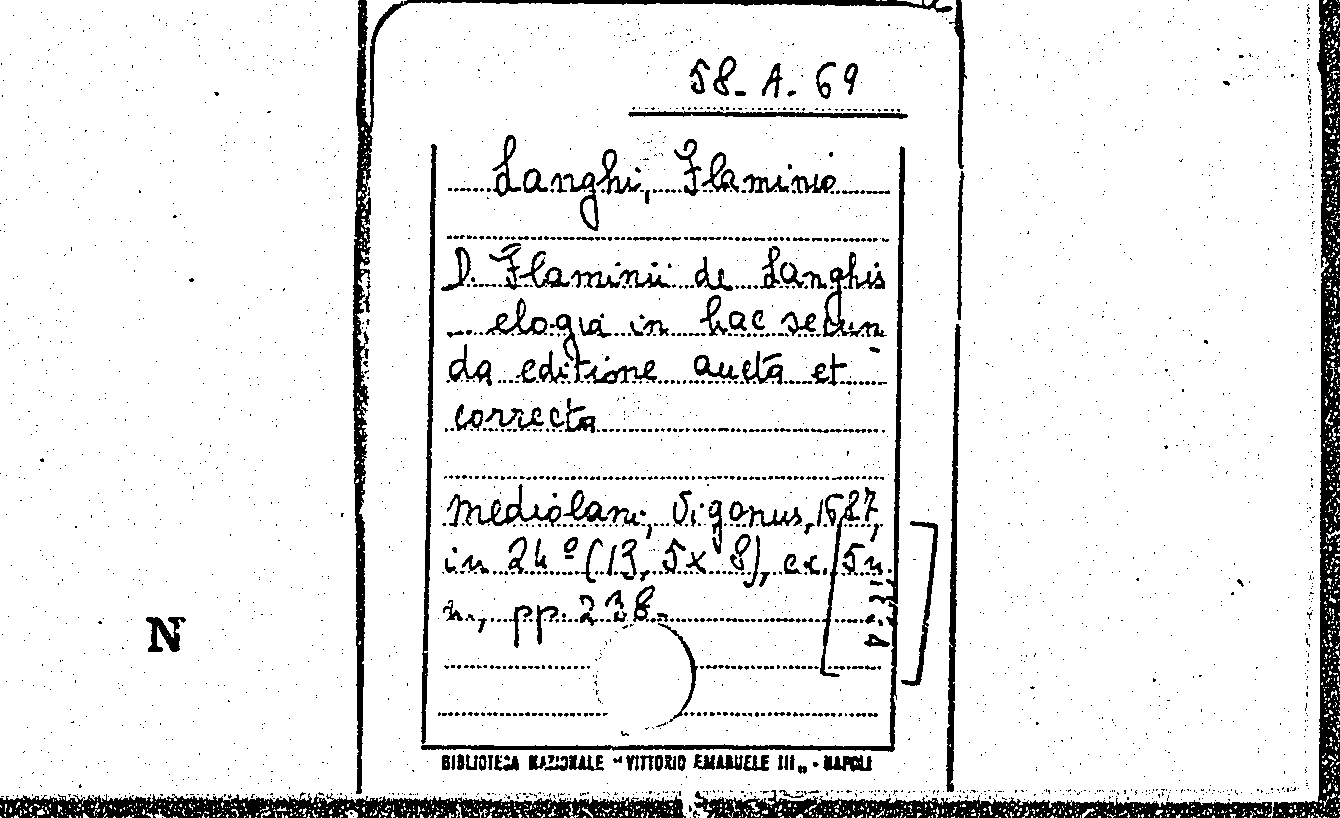 58. A. 69
Langhi, Flaminio
D. Flaminii de Langhis
... elogia in hac secun
da editione aucta et
correcta
Mediolani, Vigonus, 1687,
in 24º (13, 5 x 8), cc. 5 n.
n., pp. 238.
N
BIBLIOTECA NAZIONALE "VITTORIO EMANUELE III„ - NAPOLI